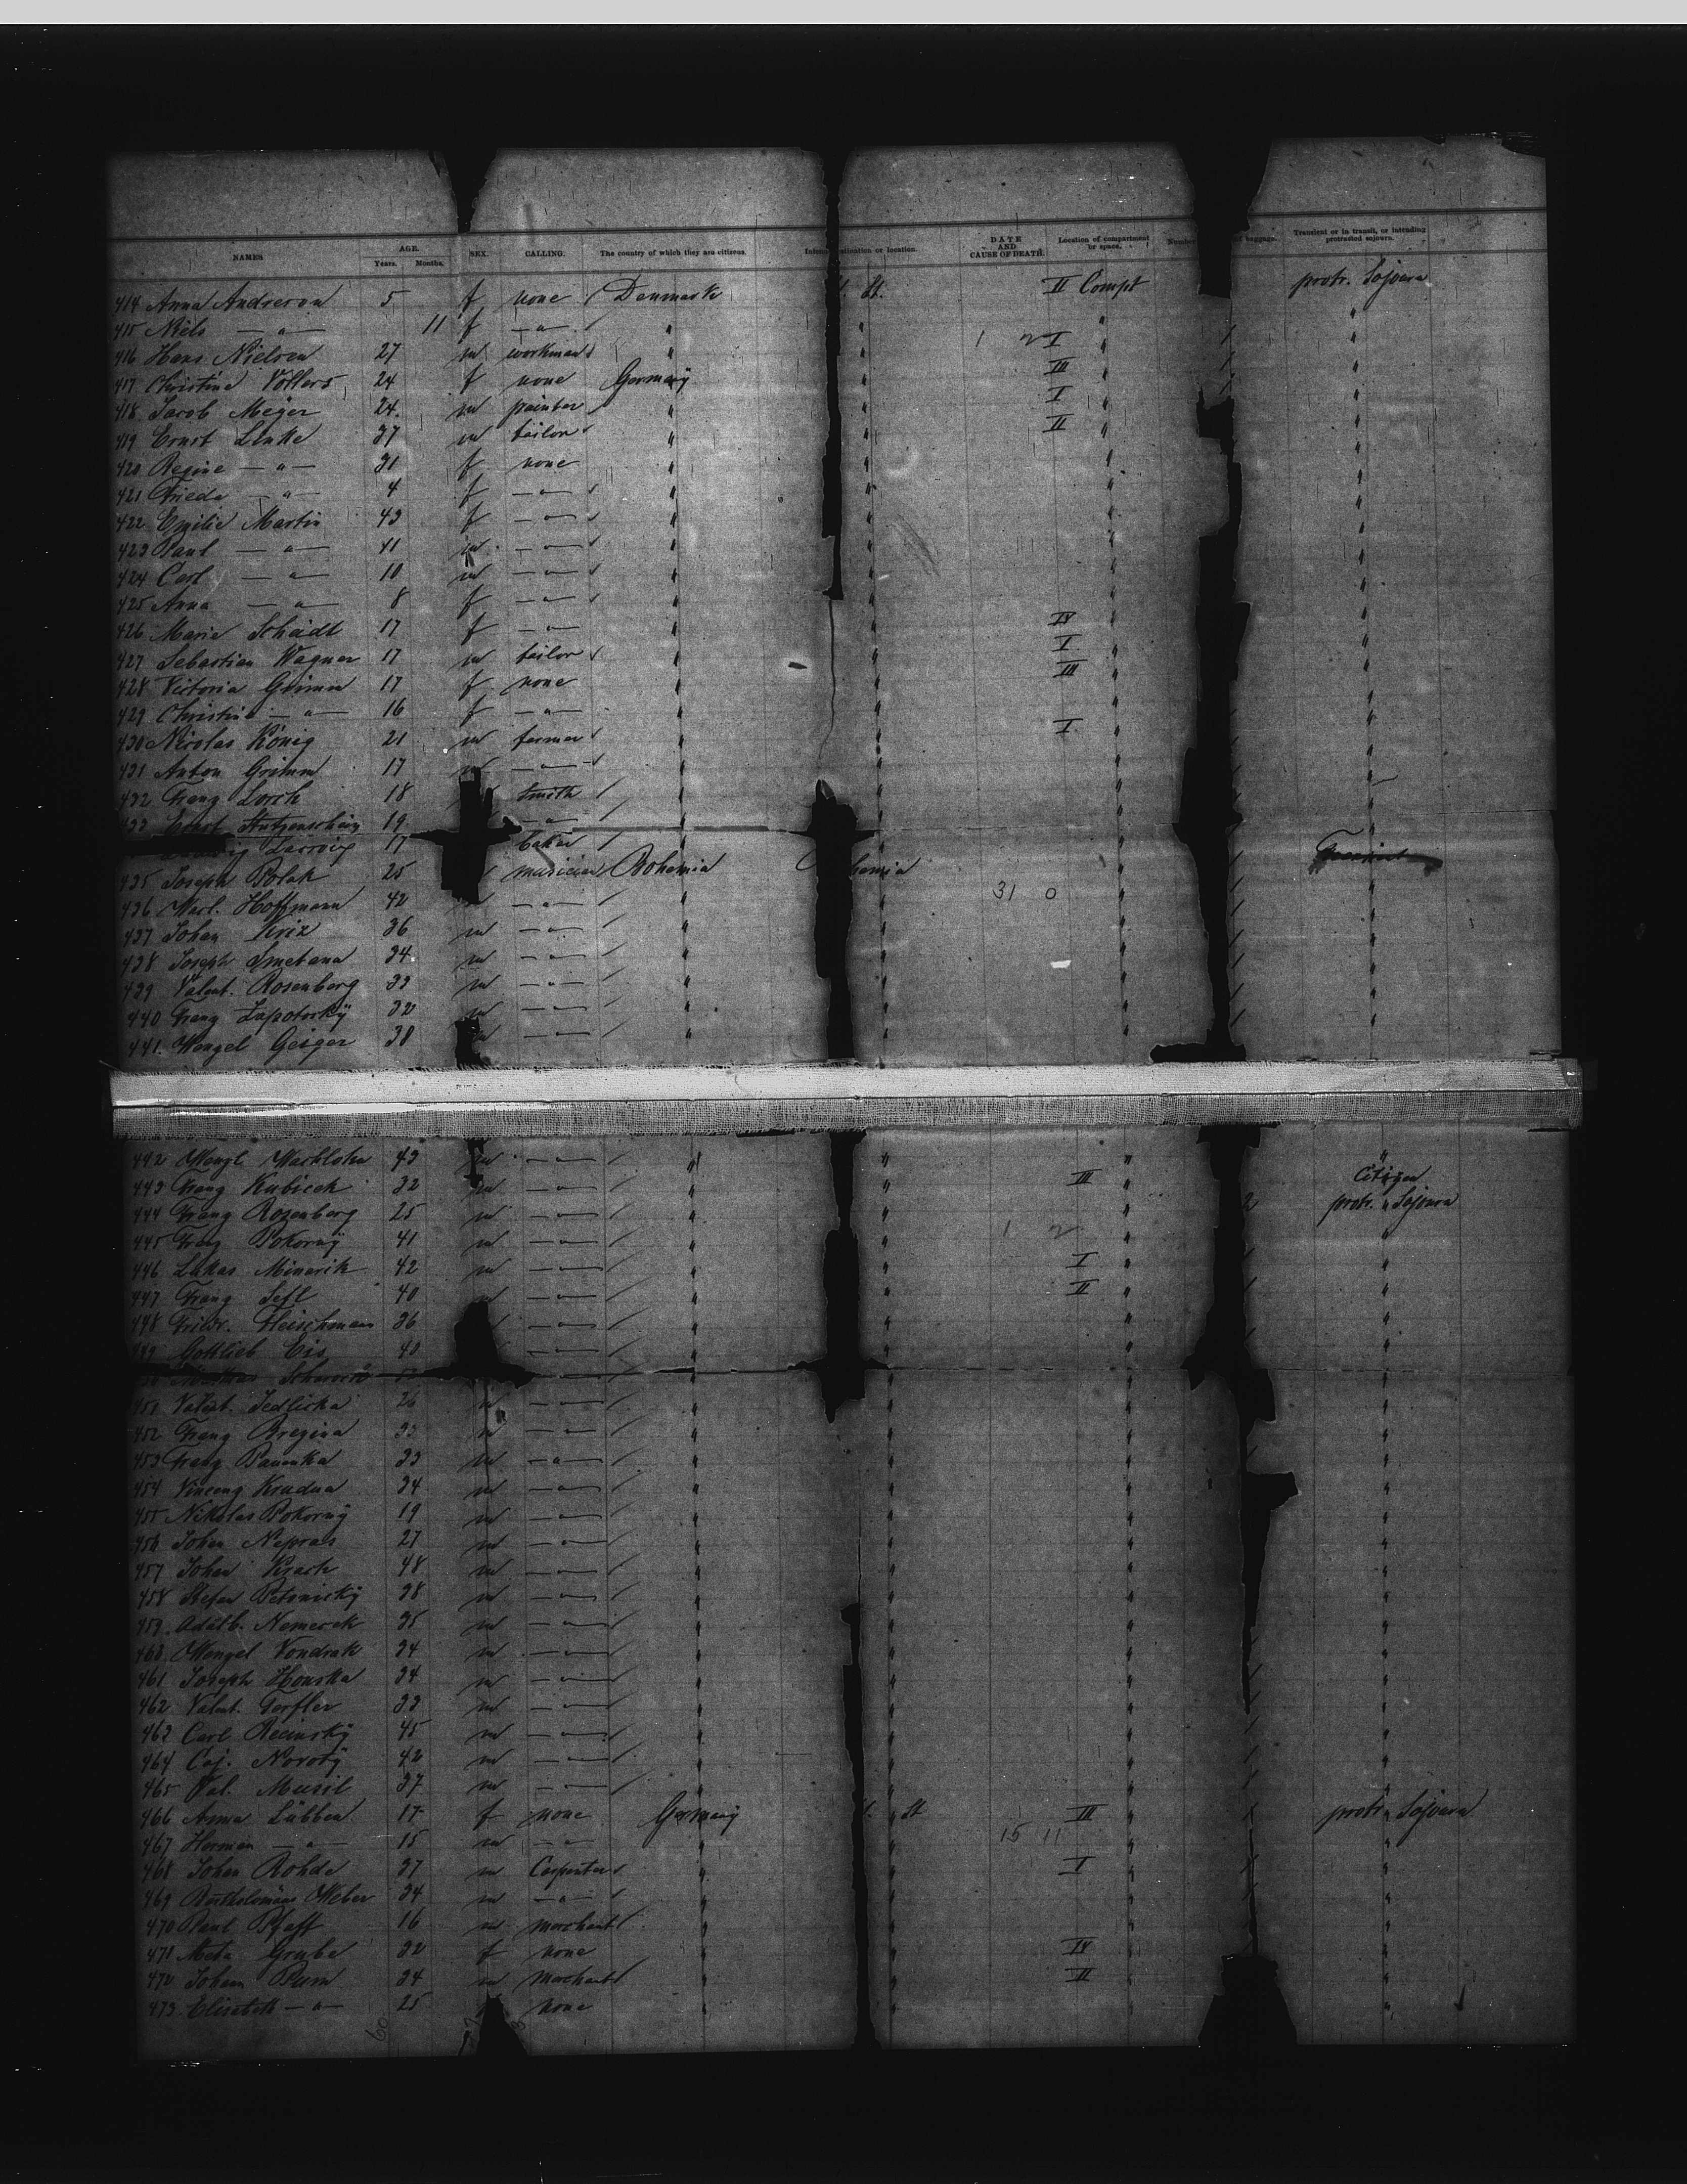 NAMES AGE. Years. Months. SEX. CALLING. The country of which they are citizens. location or location. DATE AND CAUSE OF DEATH. Location of compartment or space. Number of baggage. Transient or in transit, or intending protracted sojourn.
414 Anna Andresen 5 f none Denmark St. II Compt protr. Sojourn
415 Niels — " — 11 f — " — " " " "
416 Hans Nielsen 27 m workman " " 1 2 I " "
417 Christine Vollers 24 f none Germany " III " "
418 Jacob Meyer 24 m painter " " I " "
419 Ernst Linke 37 m tailor " " II " "
420 Regine — " — 31 f none " " " "
421 Frieda — " — 4 f — " — " " " "
422 Emilie Martin 43 f — " — " " " "
423 Paul — " — 11 m — " — " " " "
424 Carl — " — 10 m — " — " " " "
425 Anna — " — 8 f — " — " " " "
426 Marie Scheidt 17 f — " — " " IV " "
427 Sebastian Wagner 17 m tailor " " I " "
428 Victoria Grimm 17 f none " " III " "
429 Christine — " — 16 f — " — " " " "
430 Nicolas König 21 m farmer " " I " "
431 Anton Grimm 17 m — " — " " " "
432 Franz Lorch 18 smith " " " "
433 Ernst 19 — " — " " " "
17 baker " " "
435 Joseph Polak 25 musician Bohemia " "
436 Hoffmann 42 — " — " " 31 0 " "
437 Johan Kriz 36 m — " — " " " "
438 Joseph Smetana 34 m — " — " " " "
439 Valent. Rosenberg 33 m — " — " " " "
440 Franz Zapotocky 32 m — " — " " " "
441 Wenzel Geiger 38 m — " — " " " "
442 Wenzl 43 m — " — " " " "
443 Franz Kubicek 32 m — " — " " III " Citizen
444 Franz Rosenberg 25 m — " — " " " 2 protr. Sojourn
445 Franz Pokorny 41 m — " — " " 1 2 " "
446 Lukas Minarik 42 m — " — " " I " "
447 Franz Sefl 40 m — " — " " II " "
448 Friedr. Fleischmann 36 — " — " " " "
449 Gottlieb Eis 40 — " — " " " "
— " — " " " "
451 Valent. Jedlicka 26 m — " — " " " "
452 Franz Brezina 33 m — " — " " " "
453 Franz Panenka 33 m — " — " " " "
454 Vincenz Kradna 34 m — " — " " " "
455 Nikolas Pokorny 19 m — " — " " " "
456 Johan Nepras 27 m — " — " " " "
457 Johan 48 m — " — " " " "
458 Stefan 38 m — " — " " " "
459 Adalb. Nemecek 35 m — " — " " " "
460 Wenzel Vondrak 34 m — " — " " " "
461 Joseph Houska 34 m — " — " " " "
462 Valent. 33 m — " — " " " "
463 Carl 45 m — " — " " " "
464 Caj. Novotny 42 m — " — " " " "
465 Val. Musil 37 m — " — " " " "
466 Anna Lübben 17 f none Germany St III " protr. Sojourn
467 Herman — " — 15 m — " — " " 15 11 " "
468 Johan Rohde 37 m Carpenter " " I " "
469 Bartholomäus Weber 34 m — " — " " " "
470 Paul Pfaff 16 m merchant " " " "
471 Meta Grube 22 f none " " IV " "
472 Johann 34 m merchant " " II " "
473 Elisabeth — " — 25 none " " " "
60